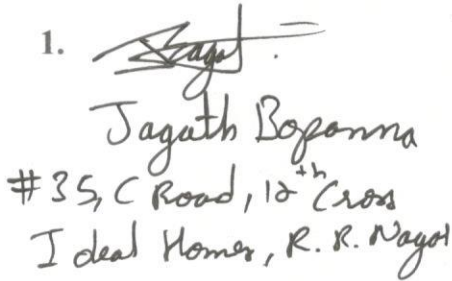 1. Jagat
Jagath Bopanna
#35, C Road, 12th Cross
Ideal Homes, R. R. Nagar